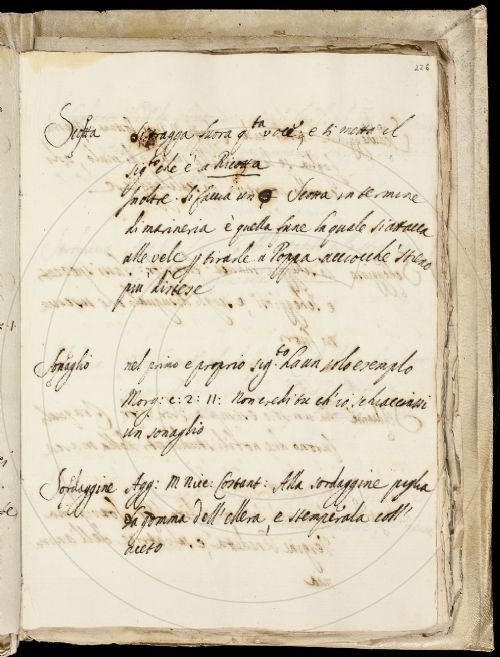 226
Scotta si tragga fuora q.ta voce, e si metta il
sig.to che è a Ricotta
Inoltre si faccia un § Scotta in termine
di marineria è quella fune la quale si attacca
alle vele p tirarle a Poppa acciocchè stieno
più distese
Sonaglio nel primo e proprio sig.to ha un solo esempio
Morg: c: 2: 11: Non credi tu ch'io schiacciassi
un sonaglio
Sordaggine Agg: M Nic: Costant: Alla sordaggine piglia
la gomma dell'ellera, e stemperala coll'
aceto